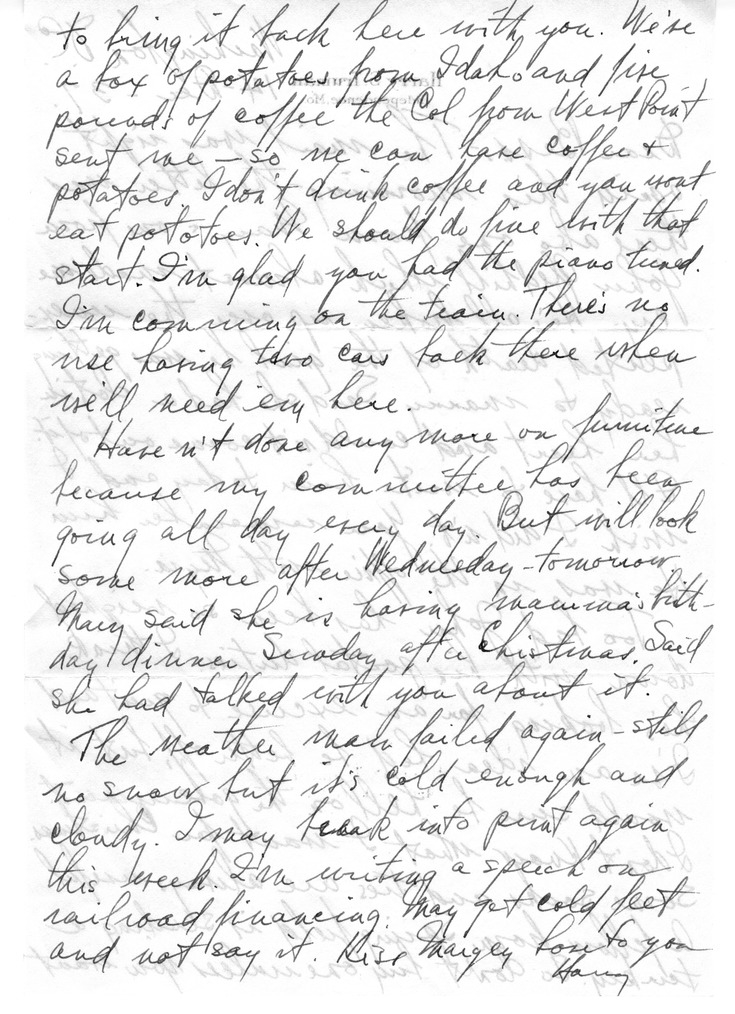 to bring it back here with you. We've
a box of potatoes from Idaho and five
pounds of coffee the Col from West Point
sent me – so we can have coffee +
potatoes. I don't drink coffee and you wont
eat potatoes. We should do fine with that
start. I'm glad you had the piano tuned.
I'm comming on the train. There's no
use having two cars back there when
we'll need em here.
Have n't done any more on furniture
because my committee has been
going all day every day. But will look
some more after Wednesday – tomorrow
Mary said she is having mamma's birth-
day dinner Sunday after Christmas. Said
she had talked with you about it.
The weather man failed again – still
no snow but it's cold enough and
cloudy. I may break into print again
this week. I'm writing a speech on
railroad financing. May get cold feet
and not say it. Kiss Margey love to you
Harry